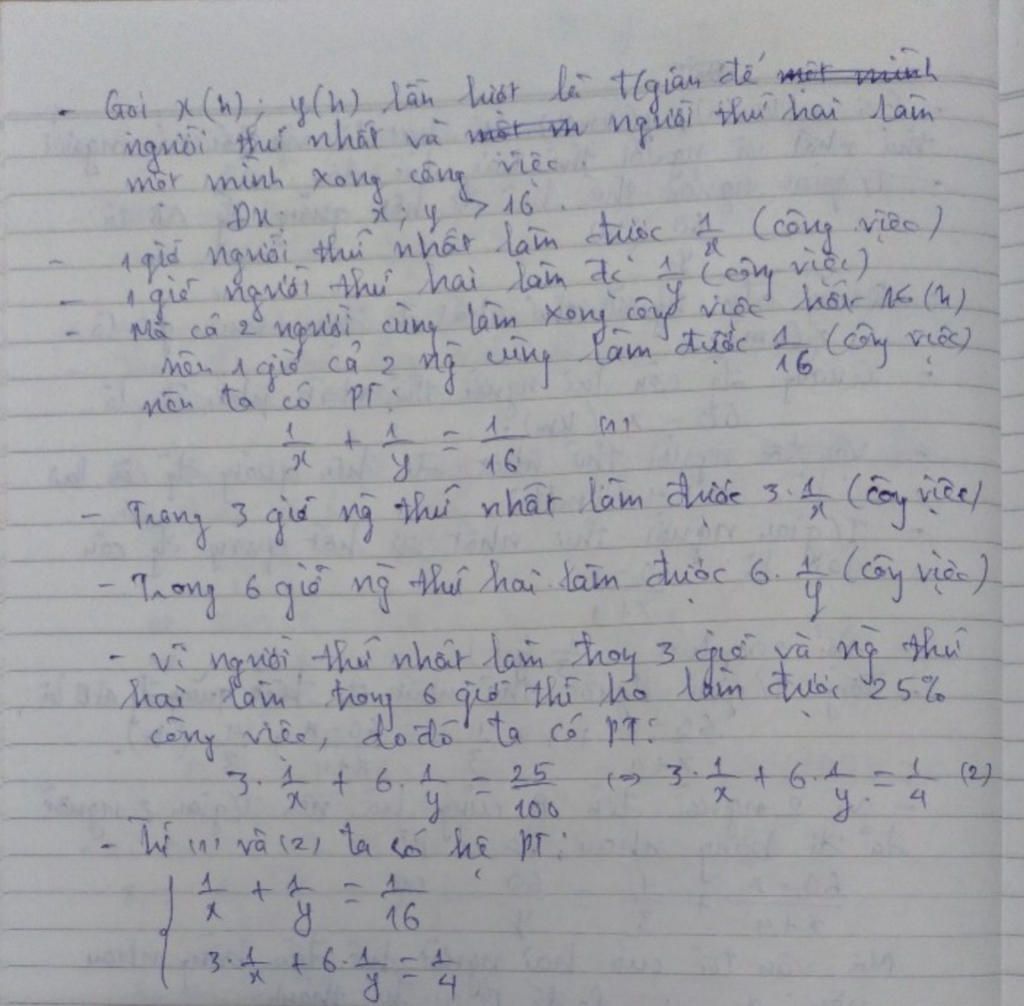 - Gọi x(h); y(h) lần lượt là t/gian để một mình
người thứ nhất và một m người thứ hai làm
một mình xong công việc.
ĐK: x; y > 16.
- 1 giờ người thứ nhất làm được 1/x (công việc)
- 1 giờ người thứ hai làm đc 1/y (công việc)
- Mà cả 2 người cùng làm xong công việc hết 16 (h)
nên 1 giờ cả 2 ng cùng làm được 1/16 (công việc)
nên ta có PT:
1/x + 1/y = 1/16 (1)
- Trong 3 giờ ng thứ nhất làm được 3. 1/x (công việc)
- Trong 6 giờ ng thứ hai làm được 6. 1/y (công việc)
- Vì người thứ nhất làm trong 3 giờ và ng thứ
hai làm trong 6 giờ thì họ làm được 25%
công việc, do đó ta có PT:
3. 1/x + 6. 1/y = 25/100 <=> 3. 1/x + 6. 1/y = 1/4 (2)
- Từ (1) và (2) ta có hệ PT:
{ 1/x + 1/y = 1/16
3. 1/x + 6. 1/y = 1/4